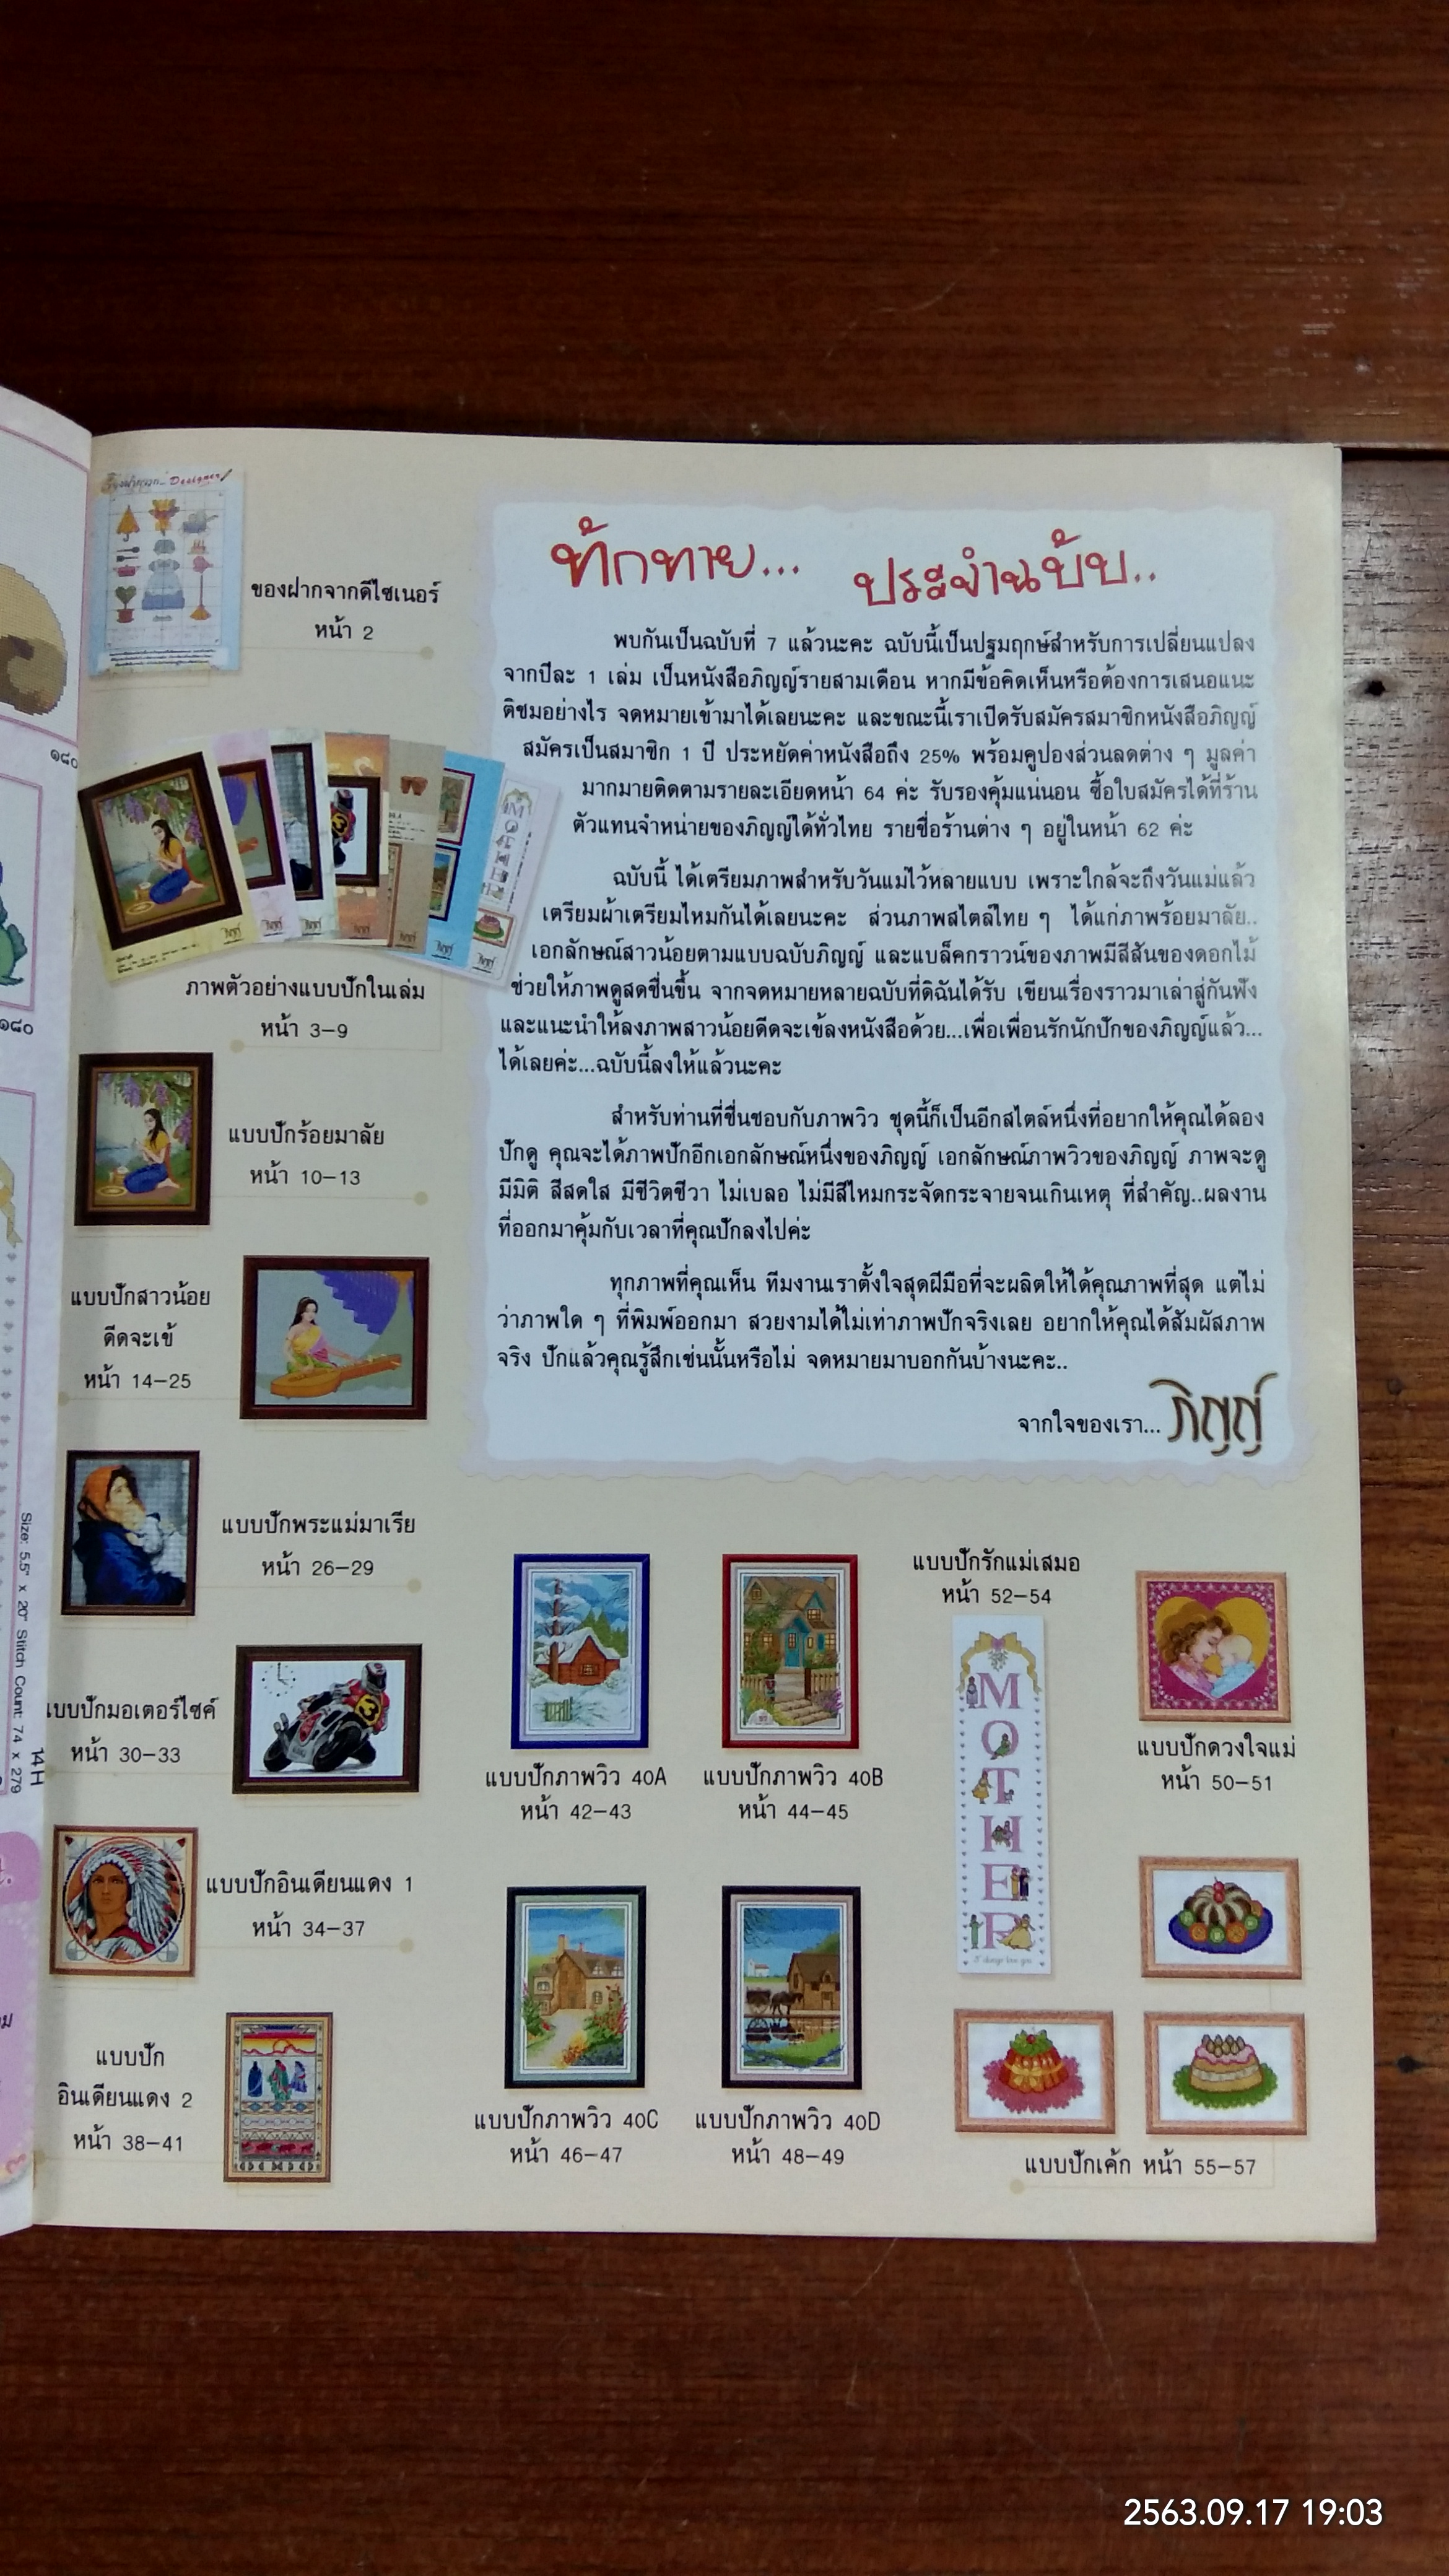 Designer
ของฝากจากดีไซเนอร์
หน้า 2
ภาพตัวอย่างแบบปักในเล่ม
หน้า 3-9
แบบปักร้อยมาลัย
หน้า 10-13
แบบปักสาวน้อย
ดีดจะเข้
หน้า 14-25
แบบปักพระแม่มาเรีย
หน้า 26-29
แบบปักมอเตอร์ไซค์
หน้า 30-33
แบบปักอินเดียนแดง 1
หน้า 34-37
แบบปัก
อินเดียนแดง 2
หน้า 38-41
ทักทาย... ประจำฉบับ..
พบกันเป็นฉบับที่ 7 แล้วนะคะ ฉบับนี้เป็นปฐมฤกษ์สำหรับการเปลี่ยนแปลง
จากปีละ 1 เล่ม เป็นหนังสือภิญญ์รายสามเดือน หากมีข้อคิดเห็นหรือต้องการเสนอแนะ
ติชมอย่างไร จดหมายเข้ามาได้เลยนะคะ และขณะนี้เราเปิดรับสมัครสมาชิกหนังสือภิญญ์
สมัครเป็นสมาชิก 1 ปี ประหยัดค่าหนังสือถึง 25% พร้อมคูปองส่วนลดต่าง ๆ มูลค่า
มากมายติดตามรายละเอียดหน้า 64 ค่ะ รับรองคุ้มแน่นอน ซื้อใบสมัครได้ที่ร้าน
ตัวแทนจำหน่ายของภิญญ์ได้ทั่วไทย รายชื่อร้านต่าง ๆ อยู่ในหน้า 62 ค่ะ
ฉบับนี้ ได้เตรียมภาพสำหรับวันแม่ไว้หลายแบบ เพราะใกล้จะถึงวันแม่แล้ว
เตรียมผ้าเตรียมไหมกันได้เลยนะคะ ส่วนภาพสไตล์ไทย ๆ ได้แก่ภาพร้อยมาลัย..
เอกลักษณ์สาวน้อยตามแบบฉบับภิญญ์ และแบล็คกราวน์ของภาพมีสีสันของดอกไม้
ช่วยให้ภาพดูสดชื่นขึ้น จากจดหมายหลายฉบับที่ดิฉันได้รับ เขียนเรื่องราวมาเล่าสู่กันฟัง
และแนะนำให้ลงภาพสาวน้อยดีดจะเข้ลงหนังสือด้วย...เพื่อเพื่อนรักนักปักของภิญญ์แล้ว...
ได้เลยค่ะ...ฉบับนี้ลงให้แล้วนะคะ
สำหรับท่านที่ชื่นชอบกับภาพวิว ชุดนี้ก็เป็นอีกสไตล์หนึ่งที่อยากให้คุณได้ลอง
ปักดู คุณจะได้ภาพปักอีกเอกลักษณ์หนึ่งของภิญญ์ เอกลักษณ์ภาพวิวของภิญญ์ ภาพจะดู
มีมิติ สีสดใส มีชีวิตชีวา ไม่เบลอ ไม่มีสีไหมกระจัดกระจายจนเกินเหตุ ที่สำคัญ..ผลงาน
ที่ออกมาคุ้มกับเวลาที่คุณปักลงไปค่ะ
ทุกภาพที่คุณเห็น ทีมงานเราตั้งใจสุดฝีมือที่จะผลิตให้ได้คุณภาพที่สุด แต่ไม่
ว่าภาพใด ๆ ที่พิมพ์ออกมา สวยงามได้ไม่เท่าภาพปักจริงเลย อยากให้คุณได้สัมผัสภาพ
จริง ปักแล้วคุณรู้สึกเช่นนั้นหรือไม่ จดหมายมาบอกกันบ้างนะคะ..
จากใจของเรา... ภิญญ์
แบบปักภาพวิว 40A
หน้า 42-43
แบบปักภาพวิว 40B
หน้า 44-45
แบบปักภาพวิว 40C
หน้า 46-47
แบบปักภาพวิว 40D
หน้า 48-49
แบบปักรักแม่เสมอ
หน้า 52-54
MOTHER
แบบปักดวงใจแม่
หน้า 50-51
แบบปักเค้ก หน้า 55-57
๑๘๐
๑๘๐
Size: 5.5" x 20" Stitch Count: 74 x 279
14H
2563.09.17 19:03